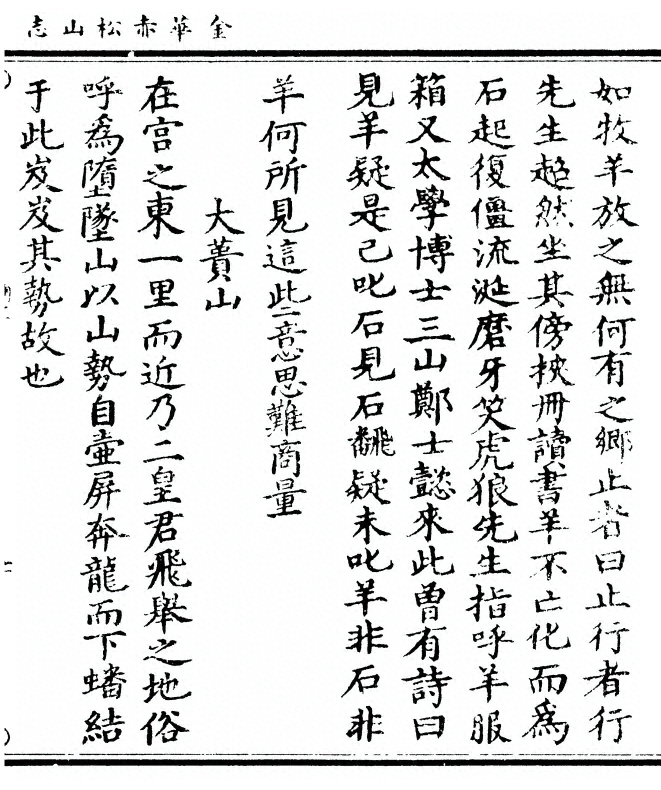 金華赤松山志
如牧羊放之無何有之鄉止者曰止行者行
先生超然坐其傍挾冊讀書羊不亡化而為
石起復僵流涎磨牙笑虎狼先生指呼羊服
箱又太學博士三山鄭士懿來此曾有詩曰
見羊疑是已叱石見石飜疑未叱羊非石非
羊何所見這些意思難商量
大蕢山
在宮之東一里而近乃二皇君飛舉之地俗
呼為墮墜山以山勢自壷屏奔龍而下蟠結
于此岌岌其勢故也